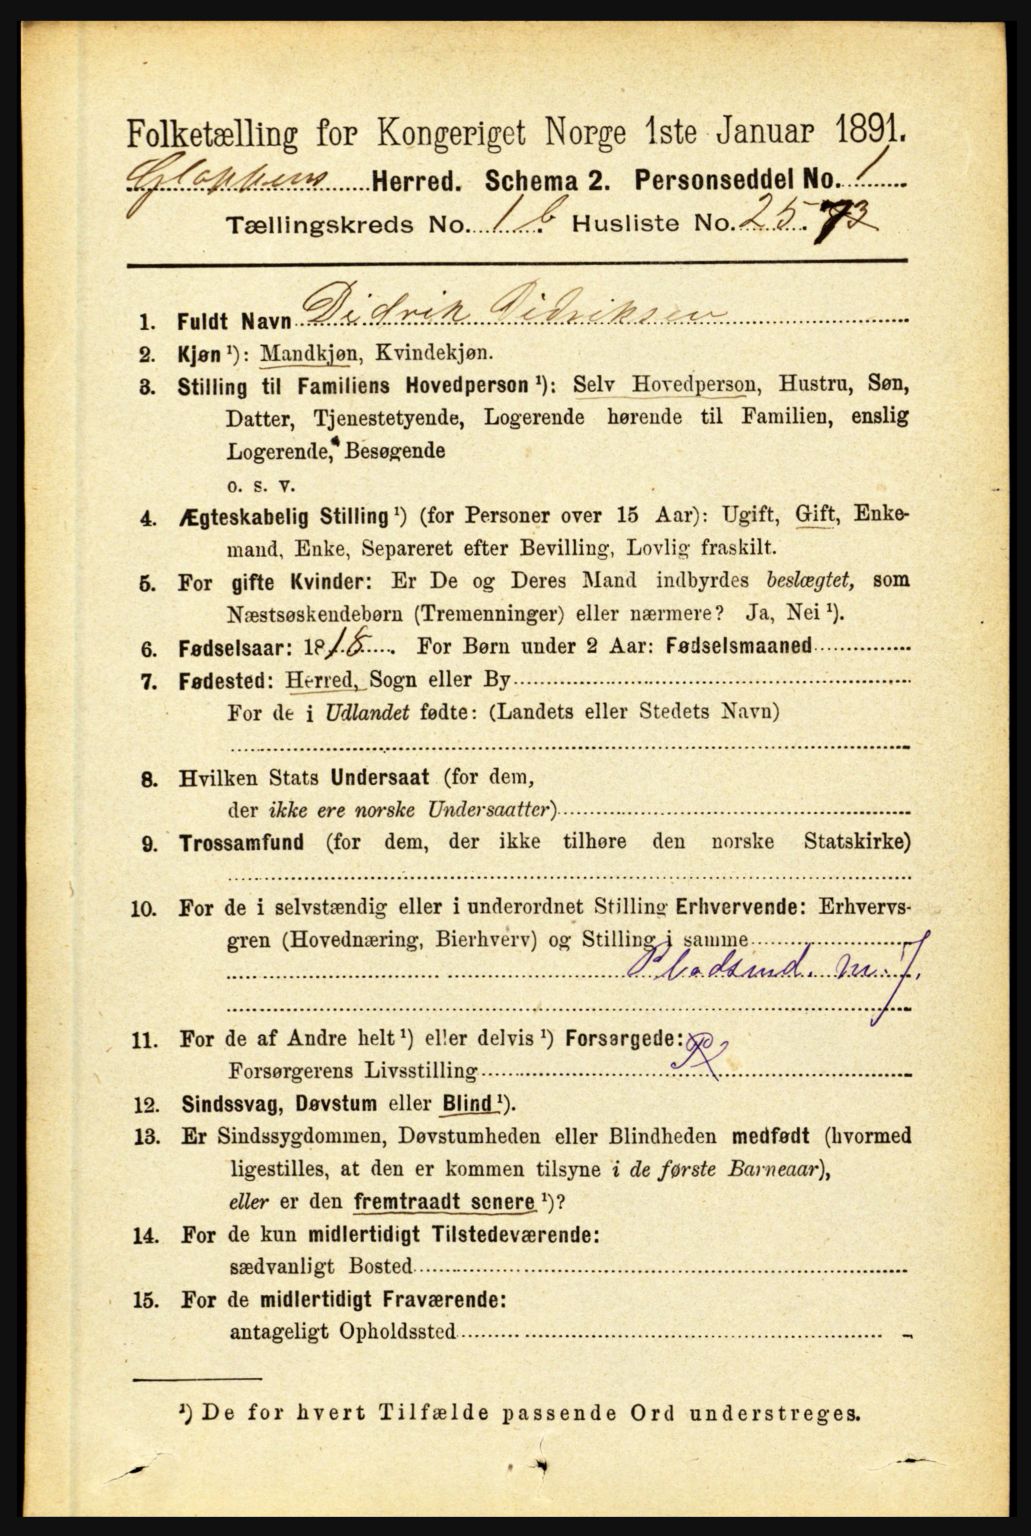 Folketælling for Kongeriget Norge 1ste Januar 1891.
Gloppens Herred. Schema 2. Personseddel No. 1
Tællingskreds No. 1 b. Husliste No. 25. 73
1. Fuldt Navn Didrik Didriksen
2. Kjøn ¹): Mandkjøn, Kvindekjøn.
3. Stilling til Familiens Hovedperson ¹): Selv Hovedperson, Hustru, Søn,
Datter, Tjenestetyende, Logerende hørende til Familien, enslig
Logerende, Besøgende
o. s. v.
4. Ægteskabelig Stilling ¹) (for Personer over 15 Aar): Ugift, Gift, Enke-
mand, Enke, Separeret efter Bevilling, Lovlig fraskilt.
5. For gifte Kvinder: Er De og Deres Mand indbyrdes beslægtet, som
Næstsøskendebørn (Tremenninger) eller nærmere? Ja, Nei ¹).
6. Fødselsaar: 1818. For Børn under 2 Aar: Fødselsmaaned
7. Fødested: Herred, Sogn eller By
For de i Udlandet fødte: (Landets eller Stedets Navn)
8. Hvilken Stats Undersaat (for dem,
der ikke ere norske Undersaatter)
9. Trossamfund (for dem, der ikke tilhøre den norske Statskirke)
10. For de i selvstændig eller i underordnet Stilling Erhvervende: Erhvervs-
gren (Hovednæring, Bierhverv) og Stilling i samme
Pladsmd. m. J.
11. For de af Andre helt ¹) eller delvis ¹) Forsørgede:
Forsørgerens Livsstilling
12. Sindssvag, Døvstum eller Blind ¹).
13. Er Sindssygdommen, Døvstumheden eller Blindheden medfødt (hvormed
ligestilles, at den er kommen tilsyne i de første Barneaar),
eller er den fremtraadt senere ¹)?
14. For de kun midlertidigt Tilstedeværende:
sædvanligt Bosted
15. For de midlertidigt Fraværende:
antageligt Opholdssted
¹) De for hvert Tilfælde passende Ord understreges.